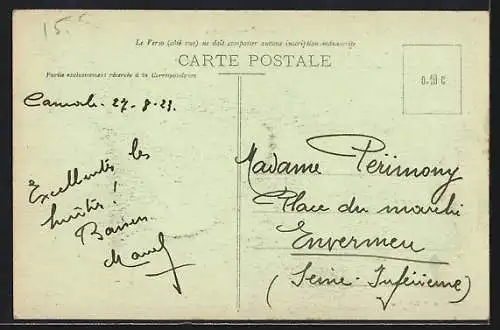 15.
Le Verso (côté vue) ne doit comporter aucune inscription manuscrite
CARTE POSTALE
Partie exclusivement réservée à la Correspondance
0.10 c
27-8-23.
Excellentes les
huîtres !
Madame Périmony
Place du marché
Envermeu
(Seine-Inférieure)